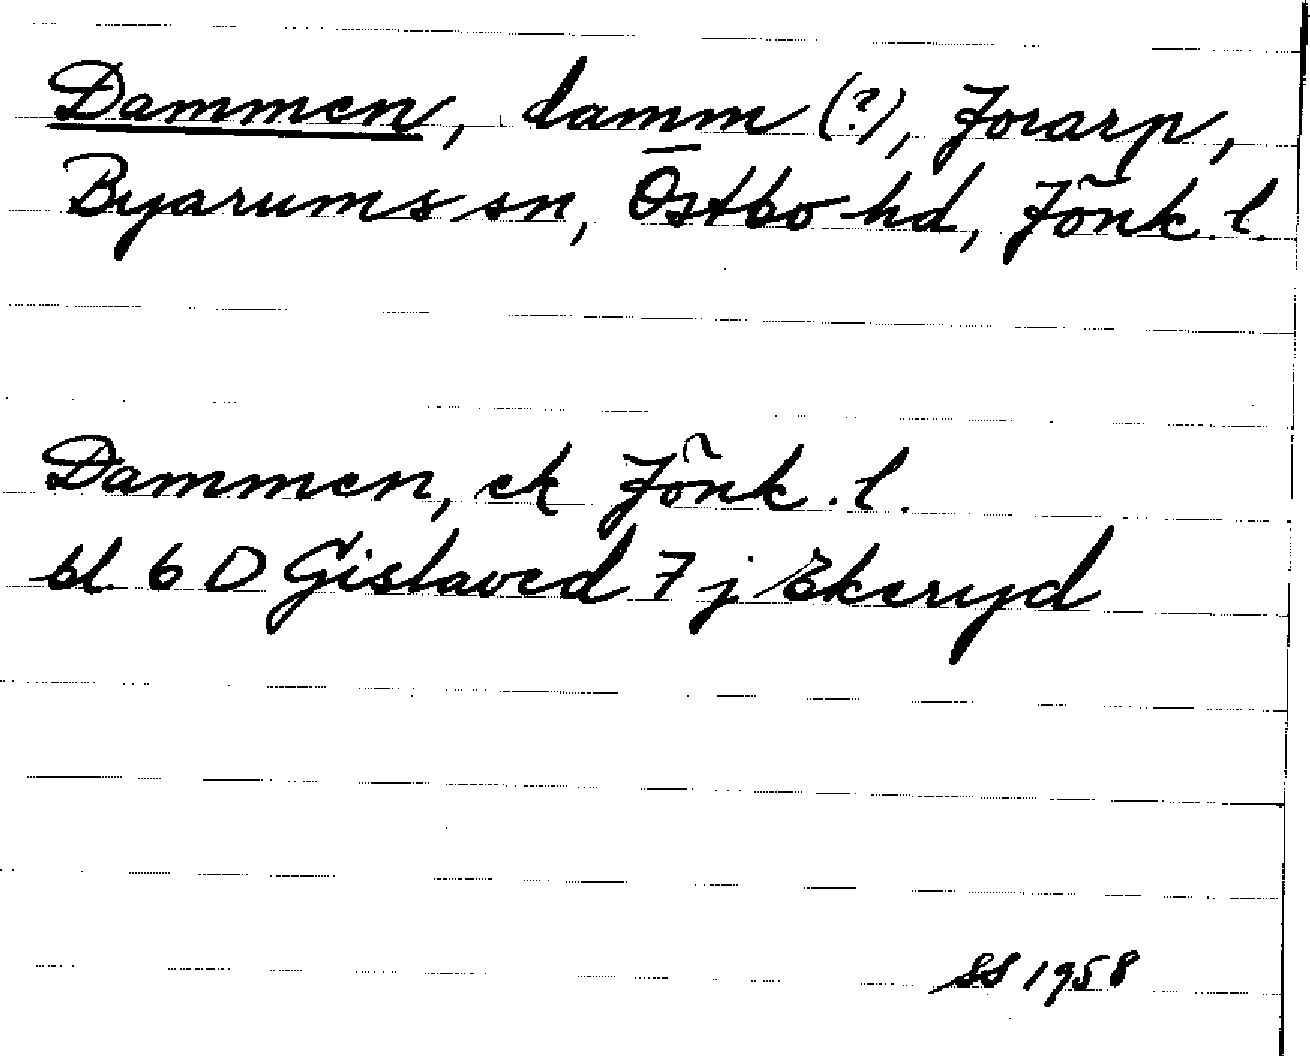 Dammen, damm (?), Jorarp,
Byarums sn, Östbo hd, Jönk. l.
Dammen, ek Jönk. l.
bl. 6 D Gislaved 7 j Ekeryd
SS 1958